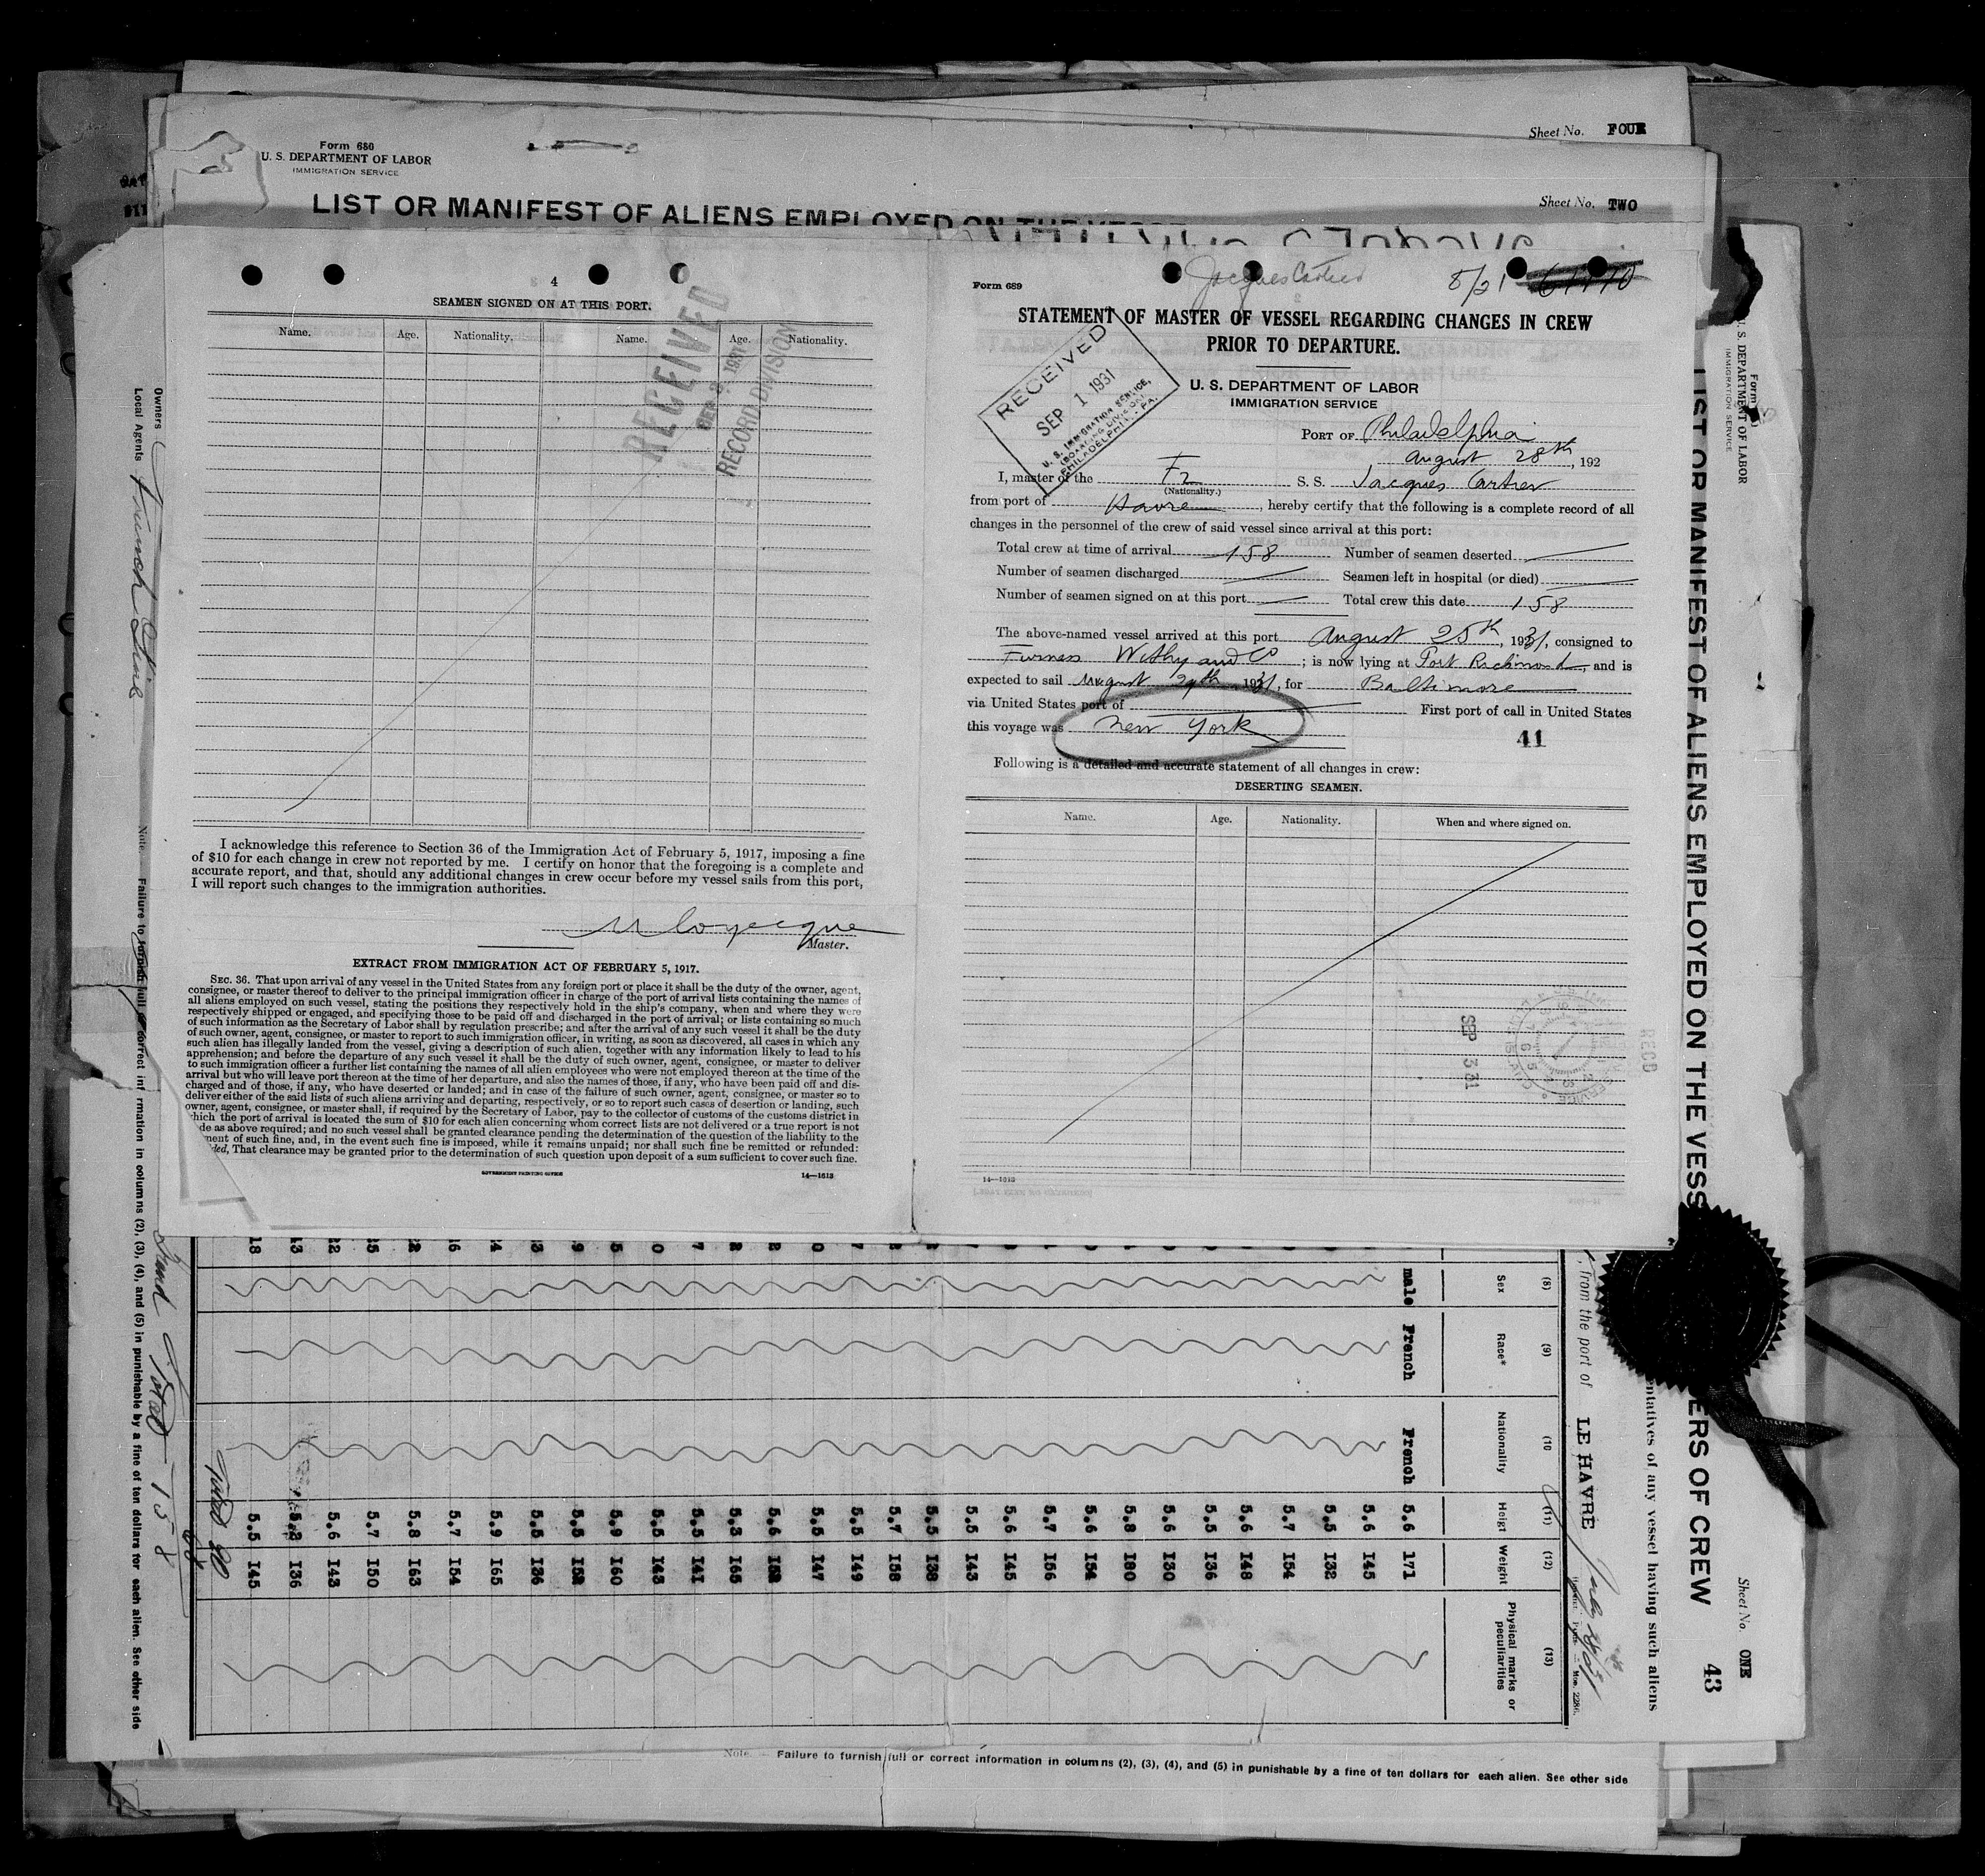 Sheet No. FOUR
Form 680
U. S. DEPARTMENT OF LABOR
IMMIGRATION SERVICE
Sheet No. TWO
LIST OR MANIFEST OF ALIENS EMPLOYED ON THE
4
SEAMEN SIGNED ON AT THIS PORT.
Name. Age. Nationality. Name. Age. Nationality.
RECEIVED
1931
RECORD DIVISION
I acknowledge this reference to Section 36 of the Immigration Act of February 5, 1917, imposing a fine
of $10 for each change in crew not reported by me. I certify on honor that the foregoing is a complete and
accurate report, and that, should any additional changes in crew occur before my vessel sails from this port,
I will report such changes to the immigration authorities.
Master.
EXTRACT FROM IMMIGRATION ACT OF FEBRUARY 5, 1917.
SEC. 36. That upon arrival of any vessel in the United States from any foreign port or place it shall be the duty of the owner, agent,
consignee, or master thereof to deliver to the principal immigration officer in charge of the port of arrival lists containing the names of
all aliens employed on such vessel, stating the positions they respectively hold in the ship's company, when and where they were
respectively shipped or engaged, and specifying those to be paid off and discharged in the port of arrival; or lists containing so much
of such information as the Secretary of Labor shall by regulation prescribe; and after the arrival of any such vessel it shall be the duty
of such owner, agent, consignee, or master to report to such immigration officer, in writing, as soon as discovered, all cases in which any
such alien has illegally landed from the vessel, giving a description of such alien, together with any information likely to lead to his
apprehension; and before the departure of any such vessel it shall be the duty of such owner, agent, consignee, or master to deliver
to such immigration officer a further list containing the names of all alien employees who were not employed thereon at the time of the
arrival but who will leave port thereon at the time of her departure, and also the names of those, if any, who have been paid off and dis-
charged and of those, if any, who have deserted or landed; and in case of the failure of such owner, agent, consignee, or master so to
deliver either of the said lists of such aliens arriving and departing, respectively, or so to report such cases of desertion or landing, such
owner, agent, consignee, or master shall, if required by the Secretary of Labor, pay to the collector of customs of the customs district in
which the port of arrival is located the sum of $10 for each alien concerning whom correct lists are not delivered or a true report is not
de as above required; and no such vessel shall be granted clearance pending the determination of the question of the liability to the
ment of such fine, and, in the event such fine is imposed, while it remains unpaid; nor shall such fine be remitted or refunded:
ded, That clearance may be granted prior to the determination of such question upon deposit of a sum sufficient to cover such fine.
GOVERNMENT PRINTING OFFICE 14—1613
Form 689
Jacques Cartier
8/21
STATEMENT OF MASTER OF VESSEL REGARDING CHANGES IN CREW
PRIOR TO DEPARTURE.
U. S. DEPARTMENT OF LABOR
IMMIGRATION SERVICE
RECEIVED
SEP 1 1931
U. S. IMMIGRATION SERVICE,
(BOARDING DIVISION)
PHILADELPHIA, PA.
PORT OF Philadelphia
August 28th, 192
I, master of the Fr S. S. Jacques Cartier
(Nationality.)
from port of Havre, hereby certify that the following is a complete record of all
changes in the personnel of the crew of said vessel since arrival at this port:
Total crew at time of arrival 158 Number of seamen deserted
Number of seamen discharged Seamen left in hospital (or died)
Number of seamen signed on at this port Total crew this date 158
The above-named vessel arrived at this port August 25th, 1931, consigned to
Furness Withy and Co; is now lying at Port Richmond, and is
expected to sail August 29th 1931, for Baltimore
via United States port of First port of call in United States
this voyage was New York
41
Following is a detailed and accurate statement of all changes in crew:
DESERTING SEAMEN.
Name. Age. Nationality. When and where signed on.
SEP 3 31
RECD
14—1613
Owners
Local Agents French Line
Note. Failure to furnish full or correct information in columns (2), (3), (4), and (5) in punishable by a fine of ten dollars for each alien. See other side
Grand Total 158
Total 30
Form
U. S. DEPARTMENT OF LABOR
IMMIGRATION SERVICE
Sheet No. ONE
43
LIST OR MANIFEST OF ALIENS EMPLOYED ON THE VESS
ERS OF CREW
entatives of any vessel having such aliens
, from the port of LE HAVRE
(8) (9) (10 (11) (12) (13)
Sex Race* Nationality Heigt Weight Physical marks or peculiarities
male French French 5.6 171
5.6 145
5.5 132
5.7 154
5.6 148
5.5 136
5.6 130
5.8 180
5.6 154
5.7 156
5.6 145
5.5 143
5.5 138
5.7 158
5.5 149
5.5 147
5.6 152
5.3 165
5.5 141
5.5 143
5.9 160
5.5 152
5.5 136
5.9 165
5.7 154
5.8 163
5.7 150
5.6 143
5.3 136
5.5 145
Note. Failure to furnish full or correct information in columns (2), (3), (4), and (5) in punishable by a fine of ten dollars for each alien. See other side